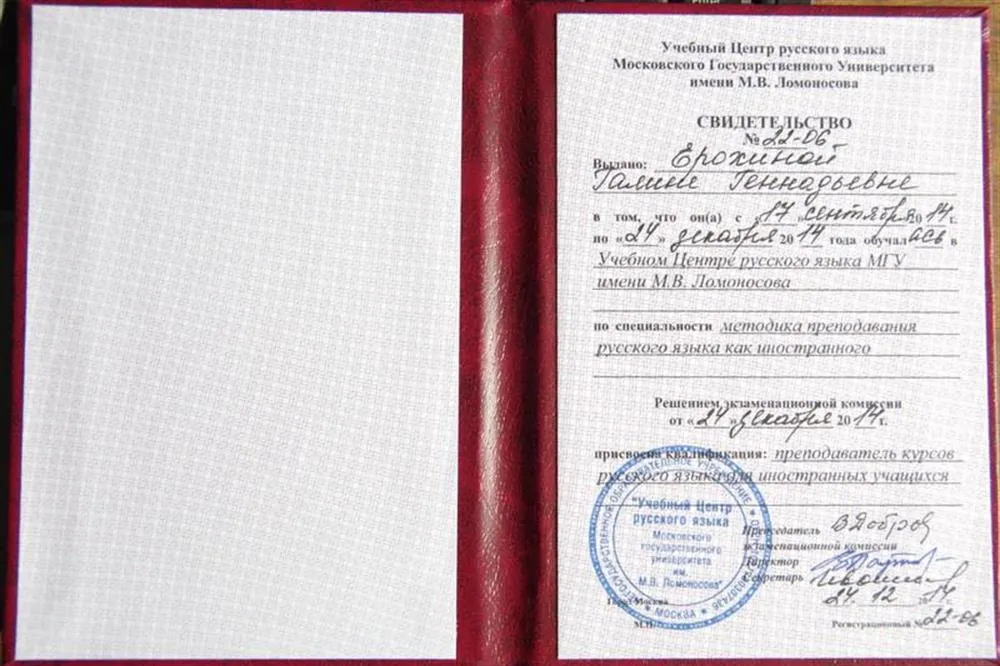 Учебный Центр русского языка
Московского Государственного Университета
имени М.В. Ломоносова
СВИДЕТЕЛЬСТВО
№ 22-06
Выдано: Ерохиной
Галине Геннадьевне
в том, что он(а) с «17» сентября 2014 г.
по «24» декабря 2014 года обучалась в
Учебном Центре русского языка МГУ
имени М.В. Ломоносова
по специальности методика преподавания
русского языка как иностранного
Решением экзаменационной комиссии
от «24» декабря 2014 г.
присвоена квалификация: преподаватель курсов
русского языка для иностранных учащихся
"Учебный Центр
русского языка
Московского
государственного
университета
им.
М.В. Ломоносова"
* МОСКВА *
Председатель
экзаменационной комиссии
Директор
Секретарь
24.12 2014
Город Москва
М.П.
Регистрационный № 22-06